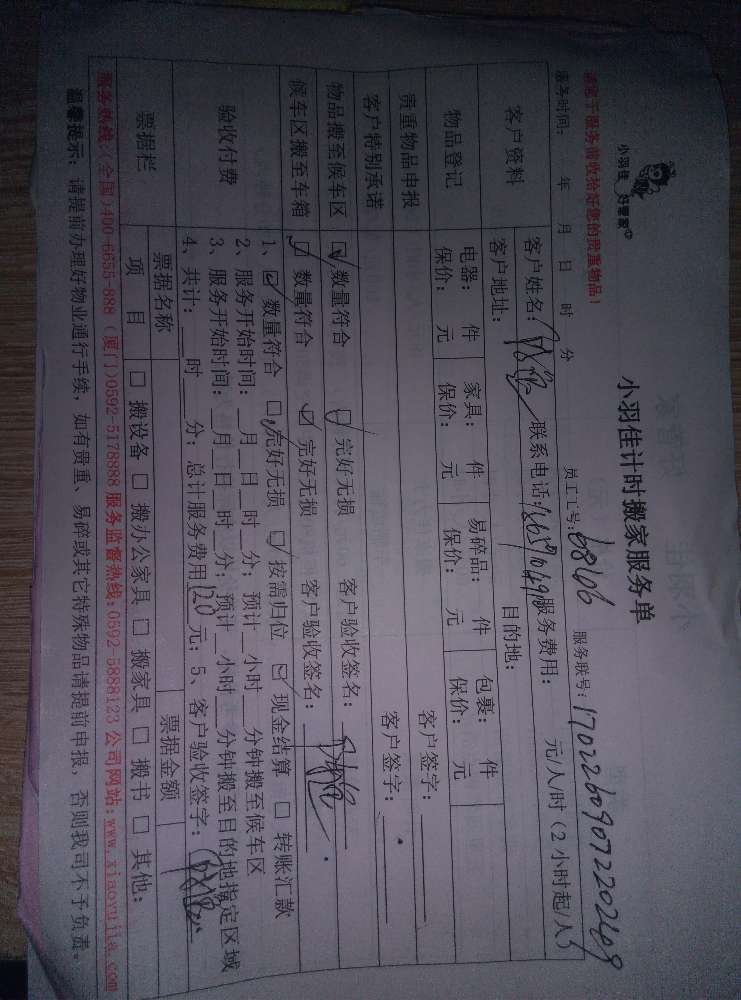 小羽佳 好管家
小羽佳计时搬家服务单
请您于服务前收拾好您的贵重物品！
员工工号：6806 服务联号：
服务时间： 年 月 日 时 分
客户资料
客户姓名： 联系电话： 服务费用： 元/人/时（2小时起/人）
客户地址： 目的地：
物品登记
电器： 件 家具： 件 易碎品： 件 包裹： 件
保价： 元 保价： 元 保价： 元 保价： 元
贵重物品申报 客户签字：
客户特别承诺 客户签字：
物品搬至候车区 ☑ 数量符合 ☑ 完好无损 客户验收签名：
候车区搬至车箱 ☑ 数量符合 ☑ 完好无损 客户验收签名：
验收付费
1、☑ 数量符合 ☑ 完好无损 ☑ 按需归位 ☑ 现金结算 □ 转账汇款
2、服务开始时间： 月 日 时 分；预计 小时 分钟搬至候车区
3、服务开始时间： 月 日 时 分；预计 小时 分钟搬至目的地指定区域
4、共计： 时 分；总计服务费用120元；5、客户验收签字：
票据栏
票据名称 票据金额
项 目 □ 搬设备 □ 搬办公家具 □ 搬家具 □ 搬书 □ 其他：
服务热线：(全国)400-6655-888（厦门)0592-5178888 服务监督热线：0592-5888123 公司网站：www.xiaoyujia.com
温馨提示：请提前办理好物业通行手续，如有贵重、易碎或其它特殊物品请提前申报，否则我司不予负责。